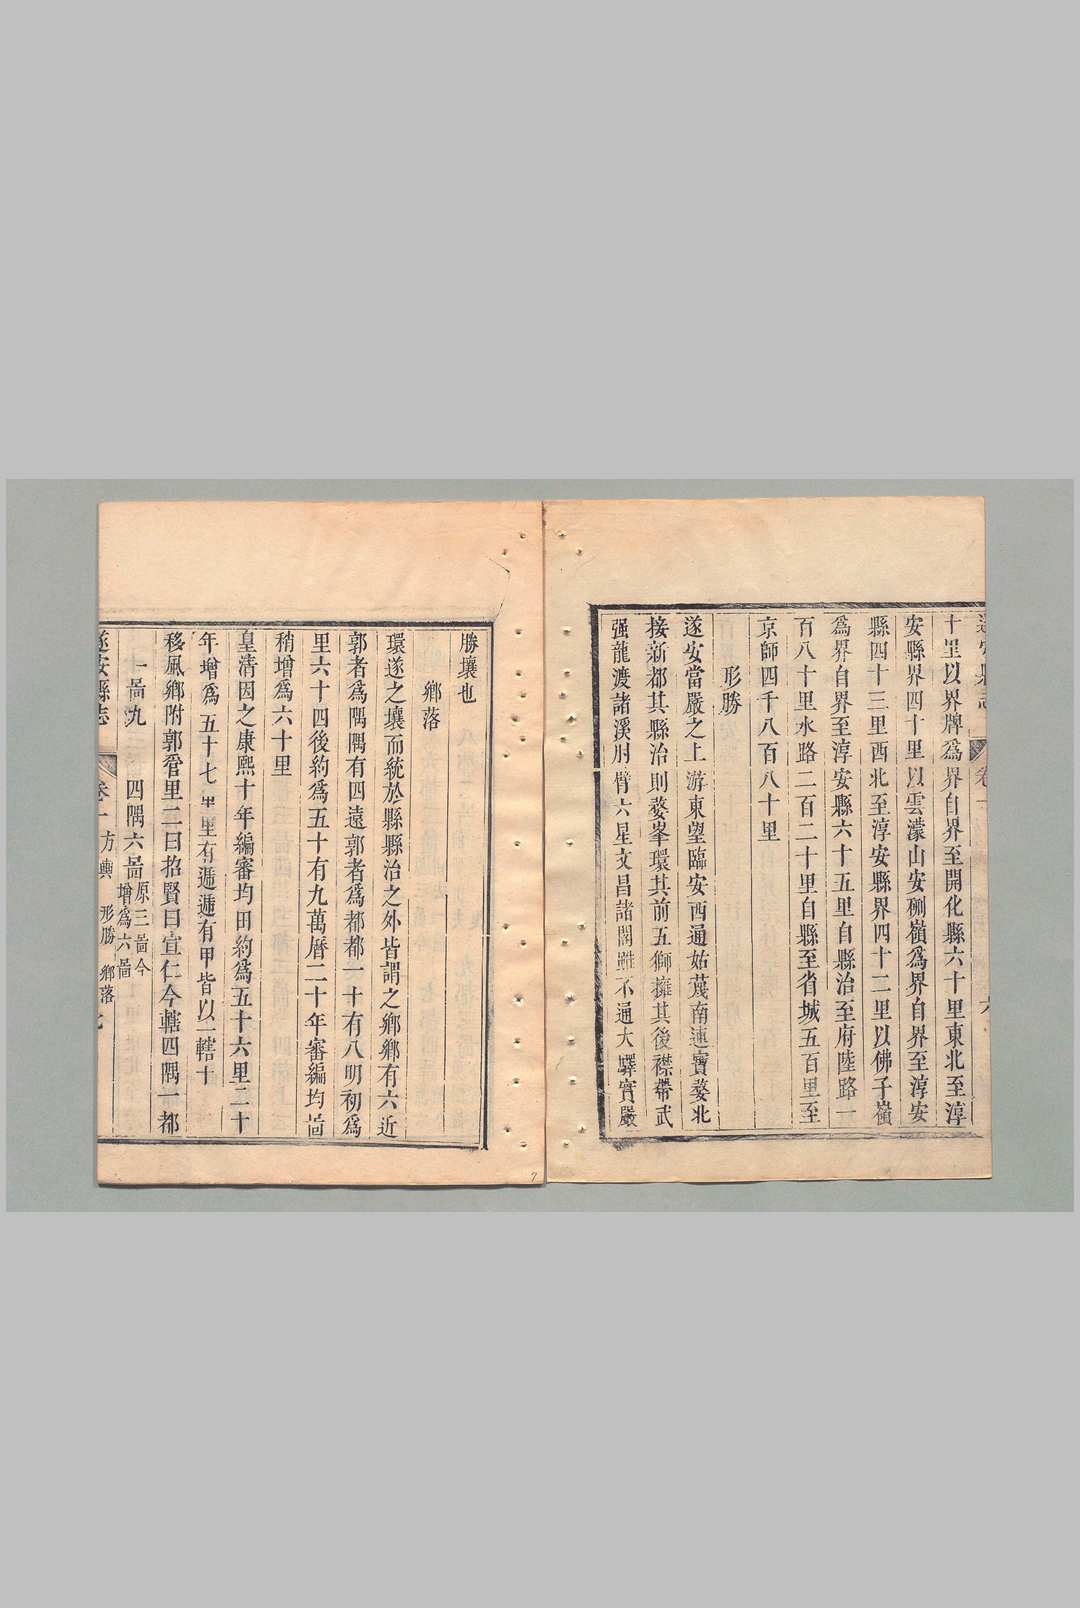 遂安縣志
卷一
六
十里以界牌爲界自界至開化縣六十里東北至淳
安縣界四十里以雲濛山安硎嶺爲界自界至淳安
縣四十三里西北至淳安縣界四十二里以佛子嶺
爲界自界至淳安縣六十五里自縣治至府陸路一
百八十里水路二百二十里自縣至省城五百里至
京師四千八百八十里
形勝
遂安當嚴之上游東望臨安西通姑蔑南連寶婺北
接新都其縣治則婺峯環其前五獅擁其後襟帶武
强龍渡諸溪肘臂六星文昌諸閣雖不通大驛實嚴
勝壤也
鄉落
環遂之壤而統於縣縣治之外皆謂之鄉鄉有六近
郭者爲隅隅有四遠郭者爲都都一十有八明初爲
里六十四後約爲五十有九萬曆二十年審編均啚
稍增爲六十里
皇清因之康熙十年編審均田約爲五十六里二十
年增爲五十七里里有遞遞有甲皆以一轄十
移風鄉附郭管里二曰招賢曰宣仁今轄四隅一都
一啚九 四隅六啚原三啚今增爲六啚
遂安縣志
卷一 方輿 形勝 鄉落 七
7